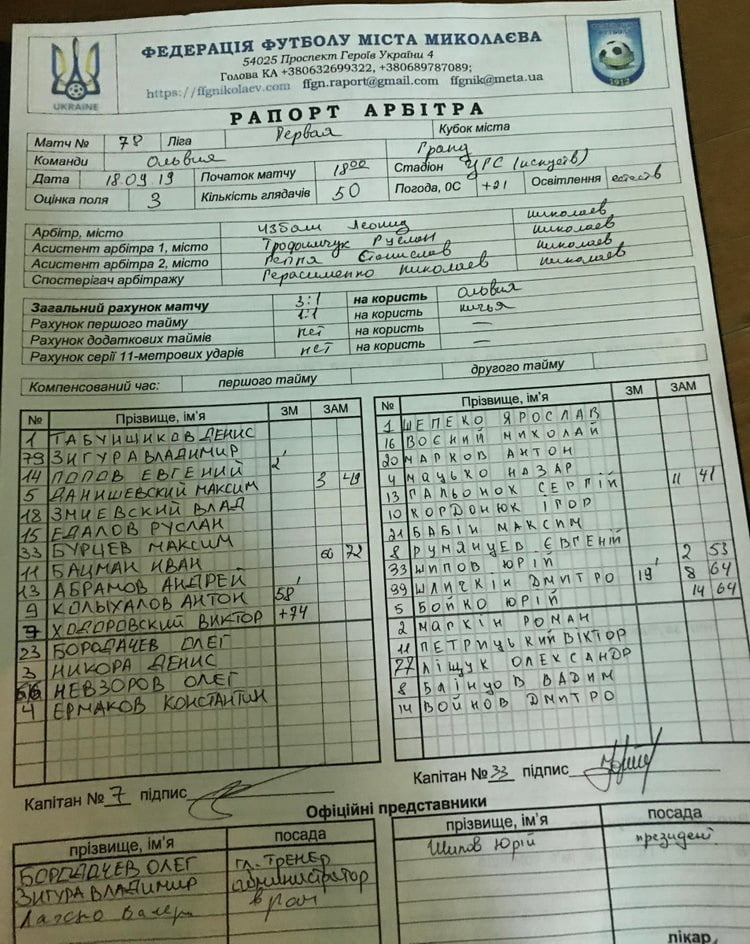 ФЕДЕРАЦІЯ ФУТБОЛУ МІСТА МИКОЛАЄВА
54025 Проспект Героїв України 4
Голова КА +380632699322, +380689787089;
https://ffgnikolaev.com ffgn.raport@gmail.com ffgnik@meta.ua
UKRAINE
РАПОРТ АРБІТРА
Матч № 78 Ліга Первая Кубок міста
Команди Ольвия Гранд
Дата 18.09.19 Початок матчу 18 00 Стадіон ЦРС (искуств)
Оцінка поля 3 Кількість глядачів 50 Погода, 0С +21 Освітлення естеств
Арбітр, місто Избаш Леонид Николаев
Асистент арбітра 1, місто Руслан Николаев
Асистент арбітра 2, місто Станислав Николаев
Спостерігач арбітражу Герасименко Николаев Николаев
Загальний рахунок матчу 3:1 на користь Ольвия
Рахунок першого тайму 1:1 на користь ничья
Рахунок додаткових таймів нет на користь —
Рахунок серії 11-метрових ударів нет на користь —
Компенсований час: першого тайму другого тайму
№ Прізвище, ім'я ЗМ ЗАМ
1 ТАБУНЩИКОВ ДЕНИС
79 ЗИГУРА ВЛАДИМИР
14 ПОПОВ ЕВГЕНИЙ 2'
5 ДАНИШЕВСКИЙ МАКСИМ 3 49
18 ЗМИЕВСКИЙ ВЛАД
15 ЕДАЛОВ РУСЛАН
33 БУРЦЕВ МАКСИМ 66 72
11 БАЦМАН ИВАН
13 АБРАМОВ АНДРЕЙ
9 КОЛЫХАЛОВ АНТОН 58'
7 ХОДОРОВСКИЙ ВИКТОР +74
23 БОРОДАЧЕВ ОЛЕГ
3 НИКОРА ДЕНИС
66 НЕВЗОРОВ ОЛЕГ
4 ЕРМАКОВ КОНСТАНТИН
Капітан № 7 підпис
№ Прізвище, ім'я ЗМ ЗАМ
1 ШЕПЕКО ЯРОСЛАВ
16 ВОЄНИЙ МИКОЛАЙ
20 МАРКОВ АНТОН
4 МАЦЬКО НАЗАР
13 ГАЛЬОНОК СЕРГІЙ 11 41
10 КОРДОНЮК ІГОР
21 БАБІН МАКСИМ
8 РУМЯНЦЕВ ЄВГЕНІЙ
33 ШИПОВ ЮРІЙ 2 53
99 ШЛИЧКІН ДМИТРО 19' 8 64
5 БОЙКО ЮРІЙ 14 64
2 МАРКІН РОМАН
11 ПЕТРИЦЬКИЙ ВІКТОР
77 ЛІЩУК ОЛЕКСАНДР
8 БЛІНЦОВ ВАДИМ
14 ВОЙНОВ ДМИТРО
Капітан № 33 підпис
Офіційні представники
прізвище, ім'я посада
БОРОДАЧЕВ ОЛЕГ гл. ТРЕНЕР
ЗИГУРА ВЛАДИМИР администратор
врач
прізвище, ім'я посада
Шипов Юрій президент
лікар,